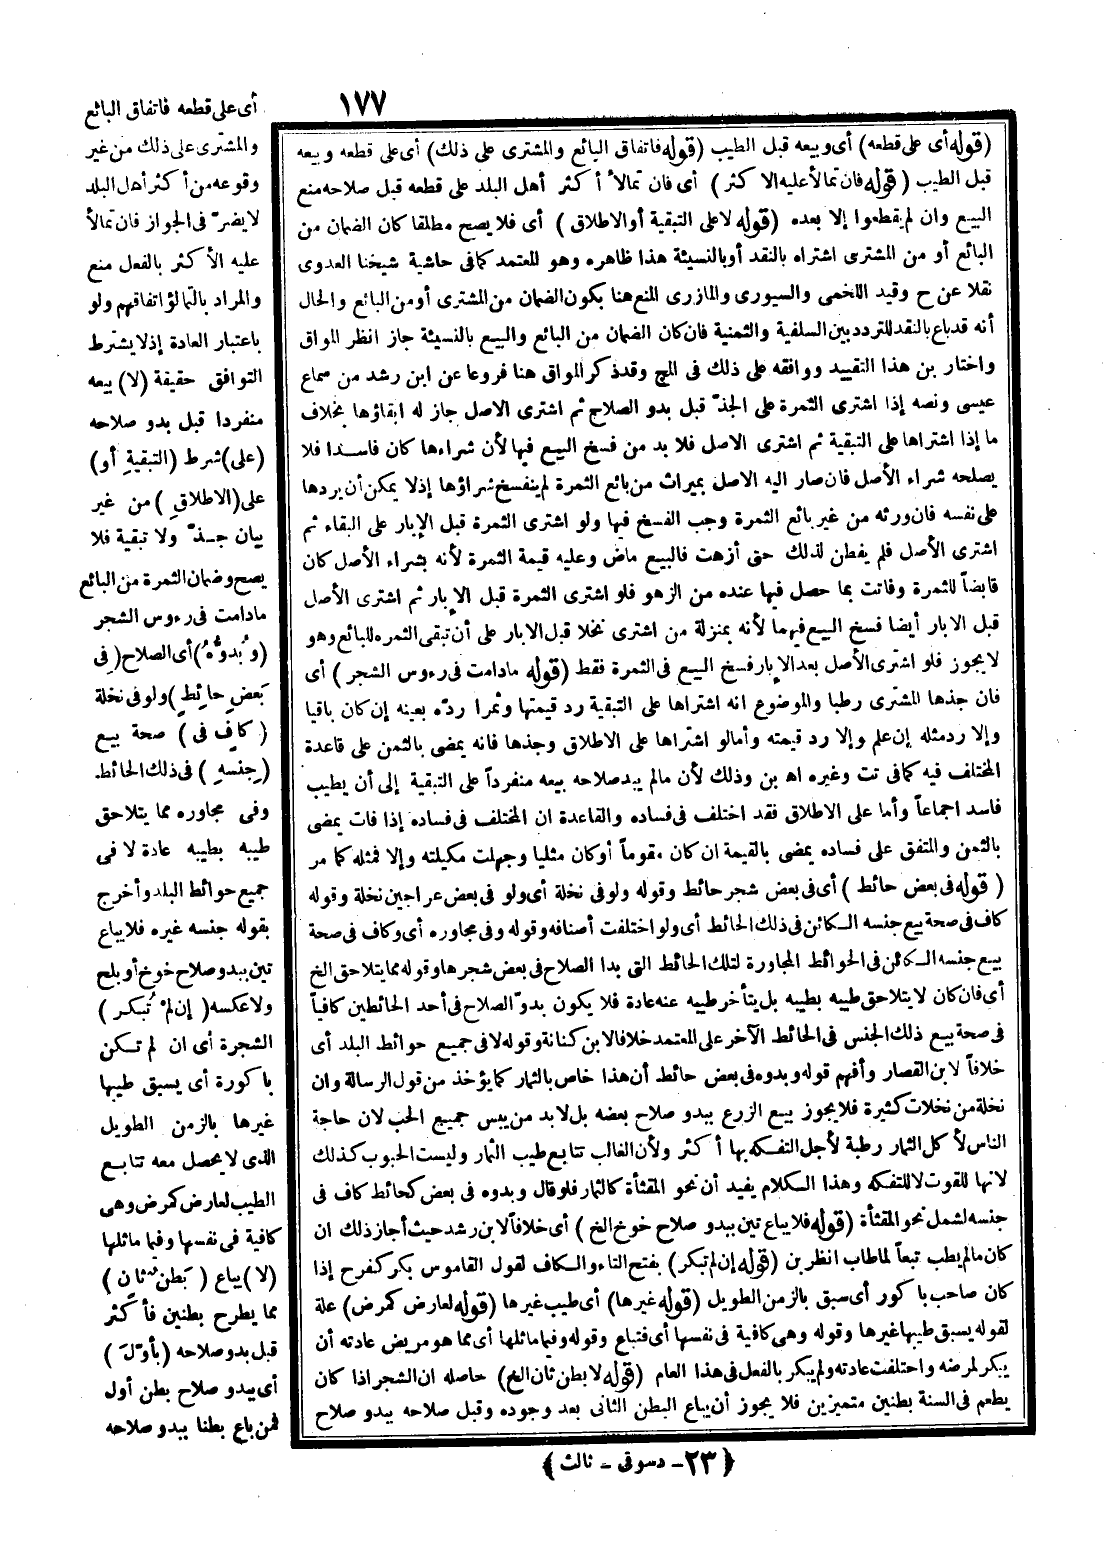 ١٧٧
(قوله أى على قطعه) أى وبيعه قبل الطيب (قوله فاتفاق البائع والمشترى على ذلك) أى على قطعه وبيعه
قبل الطيب (قوله فان تمالأ عليه الاكثر) أى فان تمالأ أكثر أهل البلد على قطعه قبل صلاحه منع
البيع وان لم يقطعوا إلا بعده (قوله لا على التبقية أو الاطلاق) أى فلا يصح مطلقا كان الضمان من
البائع أو من المشترى اشتراه بالنقد أو بالنسيئة هذا ظاهره وهو المعتمد كما فى حاشية شيخنا العدوى
نقلا عن ح وقيد اللخمى والسيورى والمازرى المنع هنا بكون الضمان من المشترى أو من البائع والحال
أنه قد باع بالنقد للتردد بين السلفية والثمنية فان كان الضمان من البائع والبيع بالنسيئة جاز انظر المواق
واختار بن هذا التقييد ووافقه على ذلك فى المج وقد ذكر المواق هنا فروعا عن ابن رشد من سماع
عيسى ونصه إذا اشترى الثمرة على الجذّ قبل بدو الصلاح ثم اشترى الاصل جاز له ابقاؤها بخلاف
ما إذا اشتراها على التبقية ثم اشترى الاصل فلا بد من فسخ البيع فيها لأن شراءها كان فاسدا فلا
يصلحه شراء الأصل فان صار اليه الاصل بميراث من بائع الثمرة لم ينفسخ شراؤها إذ لا يمكن أن يردها
على نفسه فان ورثه من غير بائع الثمرة وجب الفسخ فيها ولو اشترى الثمرة قبل الإبار على البقاء ثم
اشترى الأصل فلم يفطن لذلك حتى أزهت فالبيع ماض وعليه قيمة الثمرة لأنه بشراء الأصل كان
قابضاً للثمرة وفاتت بما حصل فيها عنده من الزهو فلو اشترى الثمرة قبل الإبار ثم اشترى الأصل
قبل الابار أيضا فسخ البيع فيهما لأنه بمنزلة من اشترى نخلا قبل الابار على أن تبقى الثمره للبائع وهو
لا يجوز فلو اشترى الأصل بعد الإبار فسخ البيع فى الثمرة فقط (قوله مادامت فى رءوس الشجر) أى
فان جذها المشترى رطبا والموضوع انه اشتراها على التبقية رد قيمتها وتمرا ردّه بعينه إن كان باقيا
وإلا رد مثله إن علم وإلا رد قيمته وأما لو اشتراها على الاطلاق وجذها فانه يمضى بالثمن على قاعدة
المختلف فيه كما فى تت وغيره اه بن وذلك لأن مالم يبد صلاحه بيعه منفرداً على التبقية إلى أن يطيب
فاسد اجماعاً وأما على الاطلاق فقد اختلف فى فساده والقاعدة ان المختلف فى فساده إذا فات يمضى
بالثمن والمتفق على فساده يمضى بالقيمة ان كان مقوماً أو كان مثليا وجهلت مكيلته وإلا فمثله كما مر
(قوله فى بعض حائط) أى فى بعض شجر حائط وقوله ولو فى نخلة أى ولو فى بعض عراجين نخلة وقوله
كاف فى صحة بيع جنسه الكائن فى ذلك الحائط أى ولو اختلفت أصنافه وقوله وفى مجاوره أى وكاف فى صحة
بيع جنسه الكائن فى الحوائط المجاورة لتلك الحائط التى بدا الصلاح فى بعض شجرها وقوله مما يتلاحق الخ
أى فان كان لا يتلاحق طيبه بطيبه بل يتأخر طيبه عنه عادة فلا يكون بدوّ الصلاح فى أحد الحائطين كافياً
فى صحة بيع ذلك الجنس فى الحائط الآخر على المعتمد خلافا لابن كنانة وقوله لا فى جميع حوائط البلد أى
خلافاً لابن القصار وأفهم قوله وبدوه فى بعض حائط أن هذا خاص بالثمار كما يؤخذ من قول الرسالة وان
نخلة من نخلات كثيرة فلا يجوز بيع الزرع ببدو صلاح بعضه بل لابد من يبس جميع الحب لان حاجة
الناس لأكل الثمار رطبة لأجل التفكه بها أكثر ولأن الغالب تتابع طيب الثمار وليست الحبوب كذلك
لانها للقوت لا للتفكه وهذا الكلام يفيد أن نحو المقثأة كالثمار فلو قال وبدوه فى بعض كحائط كاف فى
جنسه لشمل نحو المقثأة (قوله فلا يباع تين ببدو صلاح خوخ الخ) أى خلافاً لابن رشد حيث أجاز ذلك ان
كان مالم يطب تبعاً لما طاب انظر بن (قوله إن لم تبكر) بفتح التاء والكاف لقول القاموس بكر كفرح إذا
كان صاحب باكور أى سبق بالزمن الطويل (قوله غيرها) أى طيب غيرها (قوله لعارض كمرض) علة
لقوله يسبق طيبها غيرها وقوله وهى كافية فى نفسها أى فتباع وقوله وفيما ماثلها أى مما هو مريض عادته أن
يبكر لمرضه واحتلفت عادته ولم يبكر بالفعل فى هذا العام (قوله لا بطن ثان الخ) حاصله ان الشجر اذا كان
يطعم فى السنة بطنين متميزين فلا يجوز أن يباع البطن الثانى بعد وجوده وقبل صلاحه ببدو صلاح
أى على قطعه فاتفاق البائع
والمشترى على ذلك من غير
وقوعه من أكثر أهل البلد
لا يضرّ فى الجواز فان تمالأ
عليه الأكثر بالفعل منع
والمراد بالتمالؤ اتفاقهم ولو
باعتبار العادة إذ لا يشترط
التوافق حقيقة (لا) بيعه
منفردا قبل بدو صلاحه
(على) شرط (التبقيةِ أو)
على (الاطلاقِ) من غير
بيان جذّ ولا تبقية فلا
يصح وضمان الثمرة من البائع
مادامت فى رءوس الشجر
(وبُدوُّهُ) أى الصلاح (فِى
بَعضِ حائِطٍ) ولو فى نخلة
(كافٍ فى) صحة بيع
(جِنسهِ) فى ذلك الحائط
وفى مجاوره مما يتلاحق
طيبه بطيبه عادة لا فى
جميع حوائط البلد وأخرج
بقوله جنسه غيره فلا يباع
تين ببدو صلاح خوخ أو بلح
ولا عكسه (إن لمْ تُبكر)
الشجرة أى ان لم تكن
باكورة أى يسبق طيبها
غيرها بالزمن الطويل
الذى لا يحصل معه تتابع
الطيب لعارض كمرض وهى
كافية فى نفسها وفيما ماثلها
(لا) يباع (بَطن ثانٍ)
مما يطرح بطنين فأكثر
قبل بدو صلاحه (بأوّلَ)
أى ببدو صلاح بطن أول
فمن باع بطنا ببدو صلاحه
(٢٣ - دسوقى - ثالث)